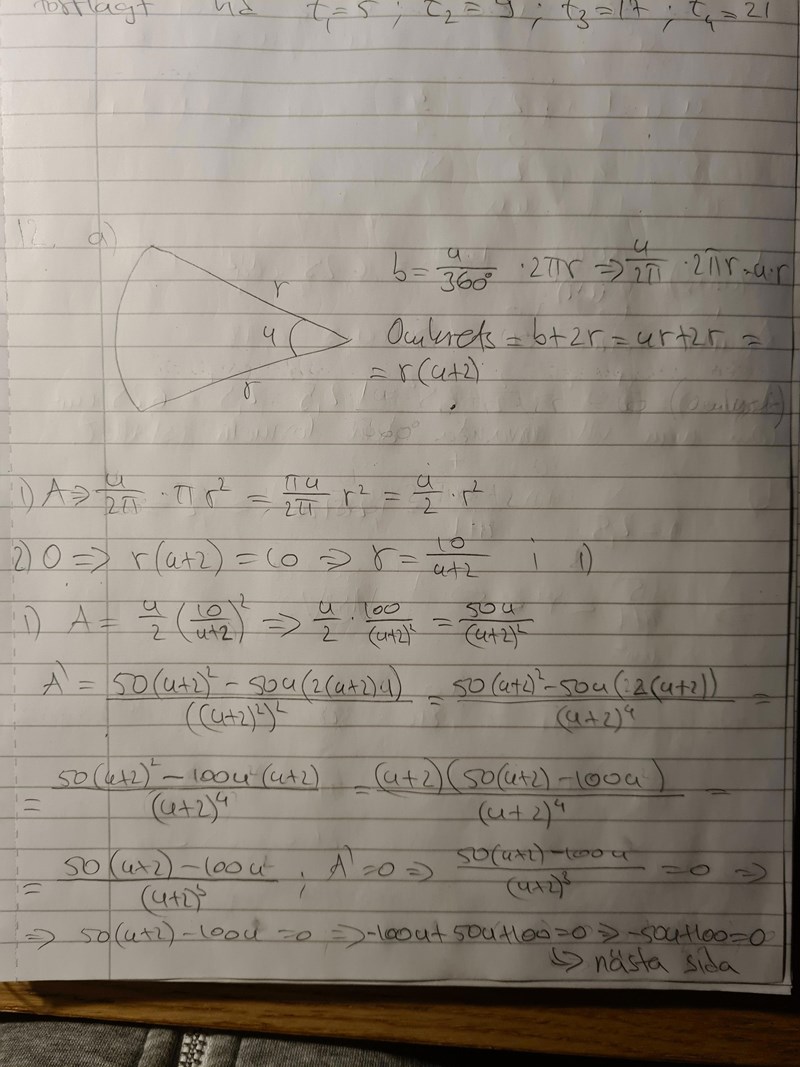 t₁=5 ; t₂=9 ; t₃=17 ; t₄=21
12. a)
r
u
r
b = u/360° · 2πr ⇒ u/2π · 2πr = u·r
Omkrets = b+2r = ur+2r =
= r(u+2)
1) A ⇒ u/2π · πr² = πu/2π r² = u/2 · r²
2) O ⇒ r(u+2) = 10 ⇒ r = 10/(u+2) i 1)
1) A = u/2 (10/(u+2))² ⇒ u/2 · 100/(u+2)² = 50u/(u+2)²
A' = (50(u+2)² - 50u(2(u+2)·1))/((u+2)²)² = (50(u+2)² - 50u(2(u+2)))/(u+2)⁴ =
= (50(u+2)² - 100u(u+2))/(u+2)⁴ = ((u+2)(50(u+2) - 100u))/(u+2)⁴ =
= (50(u+2) - 100u)/(u+2)³ ; A' = 0 ⇒ (50(u+2) - 100u)/(u+2)³ = 0 ⇒
⇒ 50(u+2) - 100u = 0 ⇒ -100u + 50u + 100 = 0 ⇒ -50u + 100 = 0
↳ nästa sida